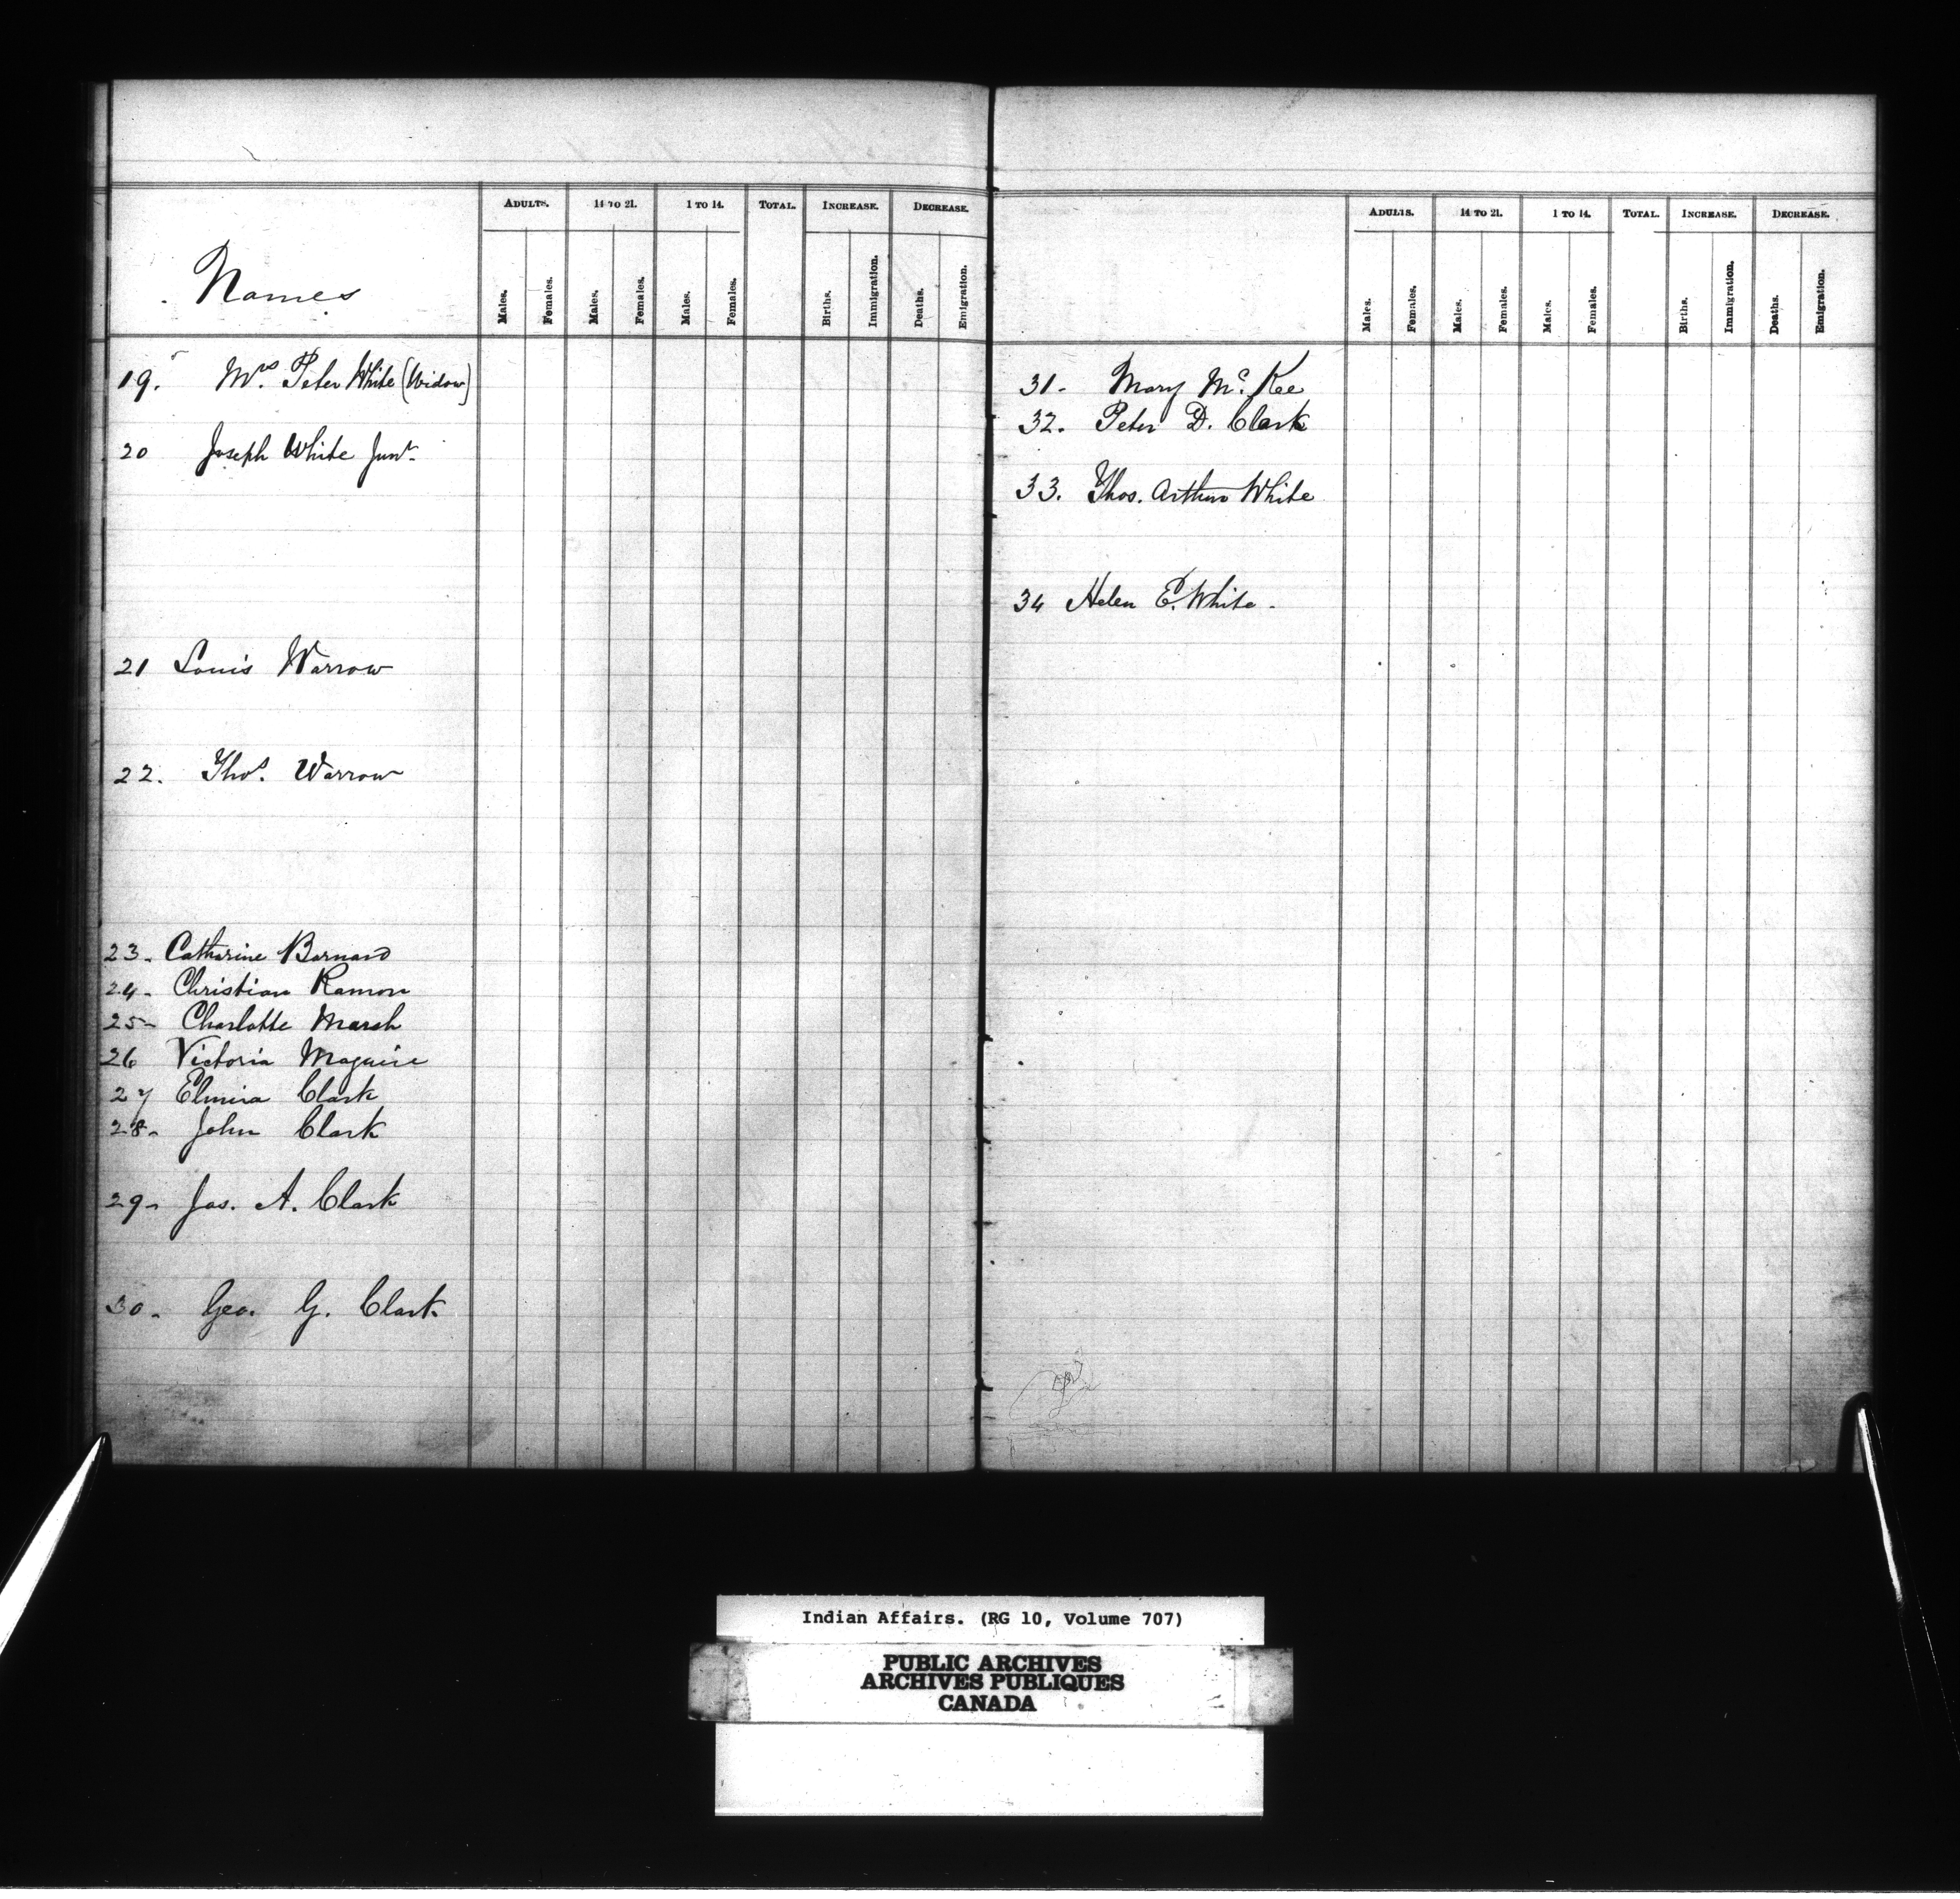 ADULTS. 14 TO 21. 1 TO 14. TOTAL. INCREASE. DECREASE.
Names
Males. Females. Males. Females. Males. Females. Births. Immigration. Deaths. Emigration.
19. Mrs. Peter White (Widow)
20 Joseph White Junr.
21 Louis Warrow
22. Thos. Warrow
23- Catharine Barnard
24- Christian Ramon
25- Charlotte Marsh
26 Victoria Maguire
27 Elmira Clark
28- John Clark
29- Jas. A. Clark
30- Geo. G. Clark
ADULTS. 14 TO 21. 1 TO 14. TOTAL. INCREASE. DECREASE.
Males. Females. Males. Females. Males. Females. Births. Immigration. Deaths. Emigration.
31- Mary Mc. Kee
32. Peter D. Clark
33. Thos. Arthur White
34 Helen E. White -
Indian Affairs. (RG 10, Volume 707)
PUBLIC ARCHIVES
ARCHIVES PUBLIQUES
CANADA